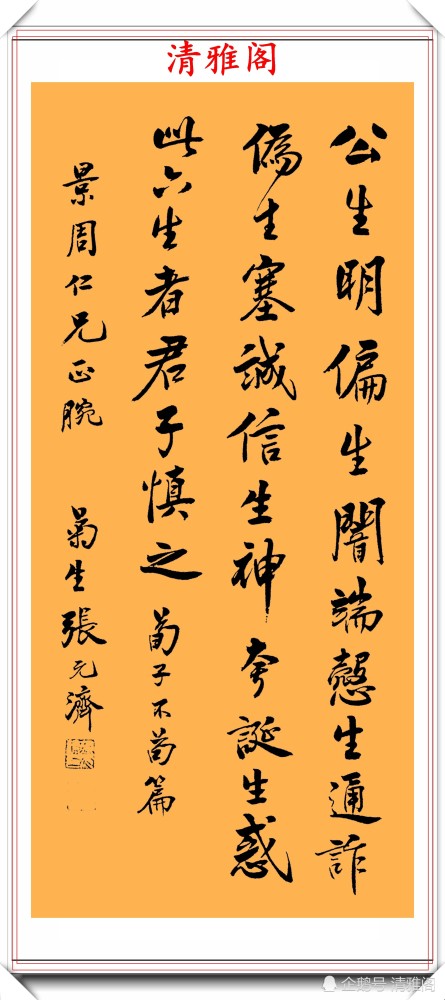 清雅阁
公生明偏生闇端愨生通詐
偽生塞誠信生神夸誕生惑
此六生者君子慎之 荀子不苟篇
景周仁兄正腕 菊生張元濟
企鹅号 清雅阁